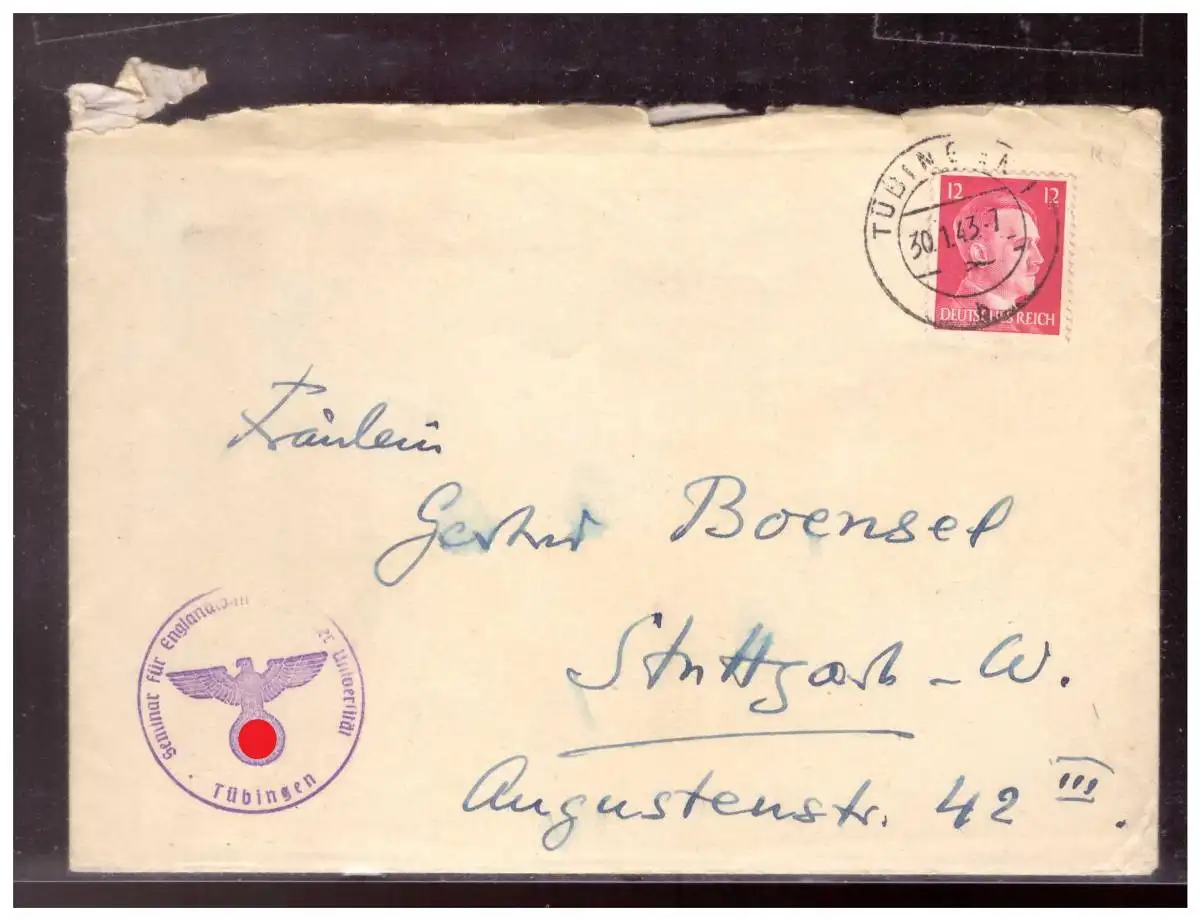 TÜBINGEN
12 12
30.1.43.-7
DEUTSCHES REICH
Fräulein
Gertrud Boensel
Stuttgart-W.
Augustenstr. 42 III.
Seminar für Englandkun er Universität
· Tübingen